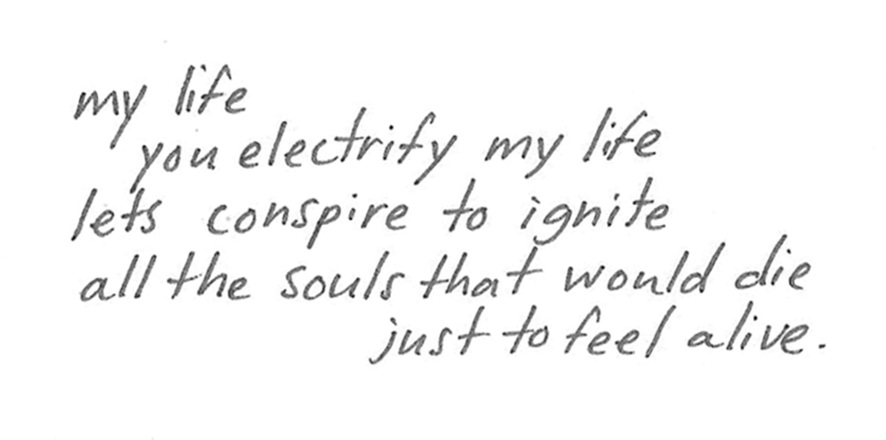 my life
you electrify my life
lets conspire to ignite
all the souls that would die
just to feel alive.